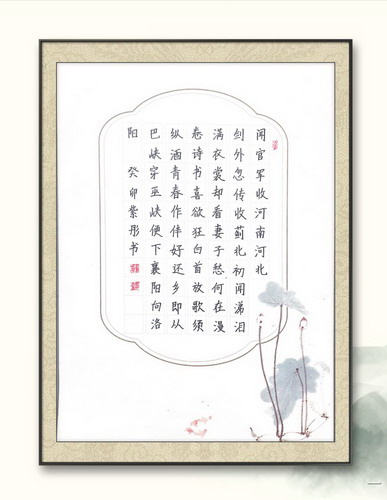 闻官军收河南河北
剑外忽传收蓟北初闻涕泪
满衣裳却看妻子愁何在漫
卷诗书喜欲狂白首放歌须
纵酒青春作伴好还乡即从
巴峡穿巫峡便下襄阳向洛
阳 癸卯紫彤书